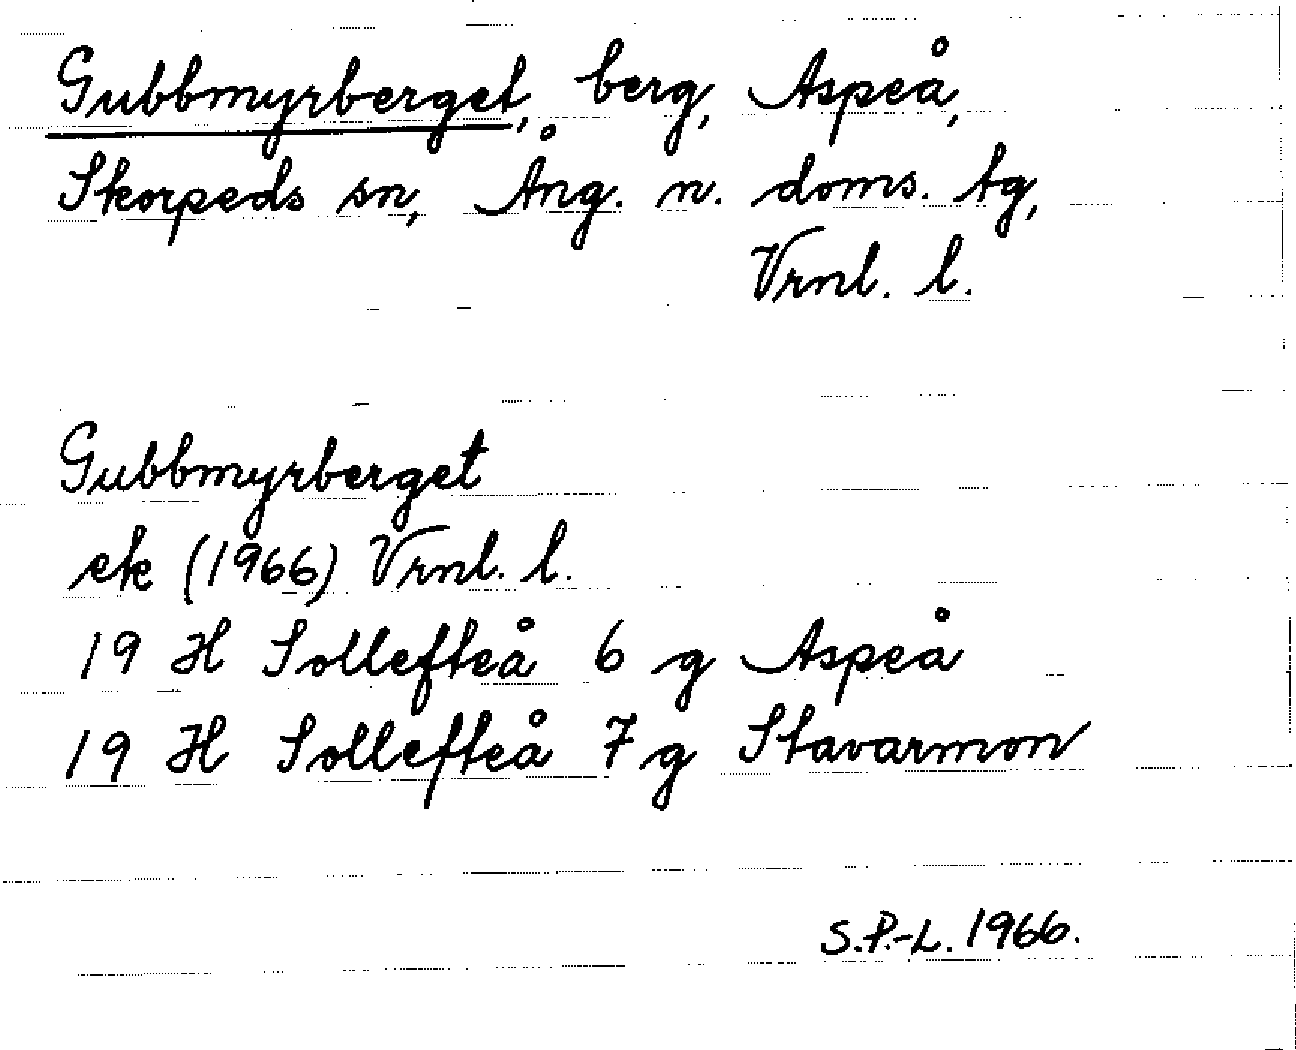 Gubbmyrberget, berg, Aspeå,
Skorpeds sn, Ång. n. doms. tg,
Vrnl. l.
Gubbmyrberget
ek (1966) Vrnl. l.
19 H Sollefteå 6 g Aspeå
19 H Sollefteå 7 g Stavarmon
S.P.-L. 1966.